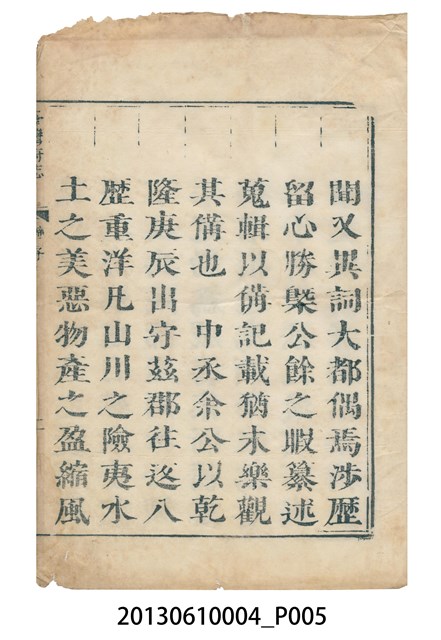 聞又異詞大都偶焉涉歷
留心勝槩公餘之暇纂述
蒐輯以備記載猶未樂觀
其備也 中丞余公以乾
隆庚辰出守茲郡往返八
歷重洋凡山川之險夷水
土之美惡物產之盈縮風
20130610004_P005